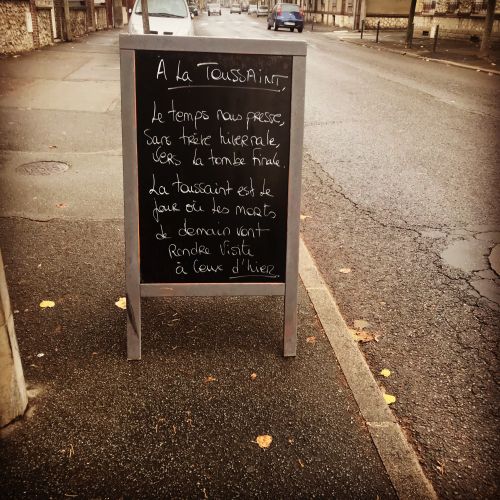 A La TOUSSAINT,
Le temps nous presse,
Sans trève hivernale,
Vers la tombe finale.
La toussaint est le
jour où les morts
de demain vont
Rendre Visite
à Ceux d'hier.